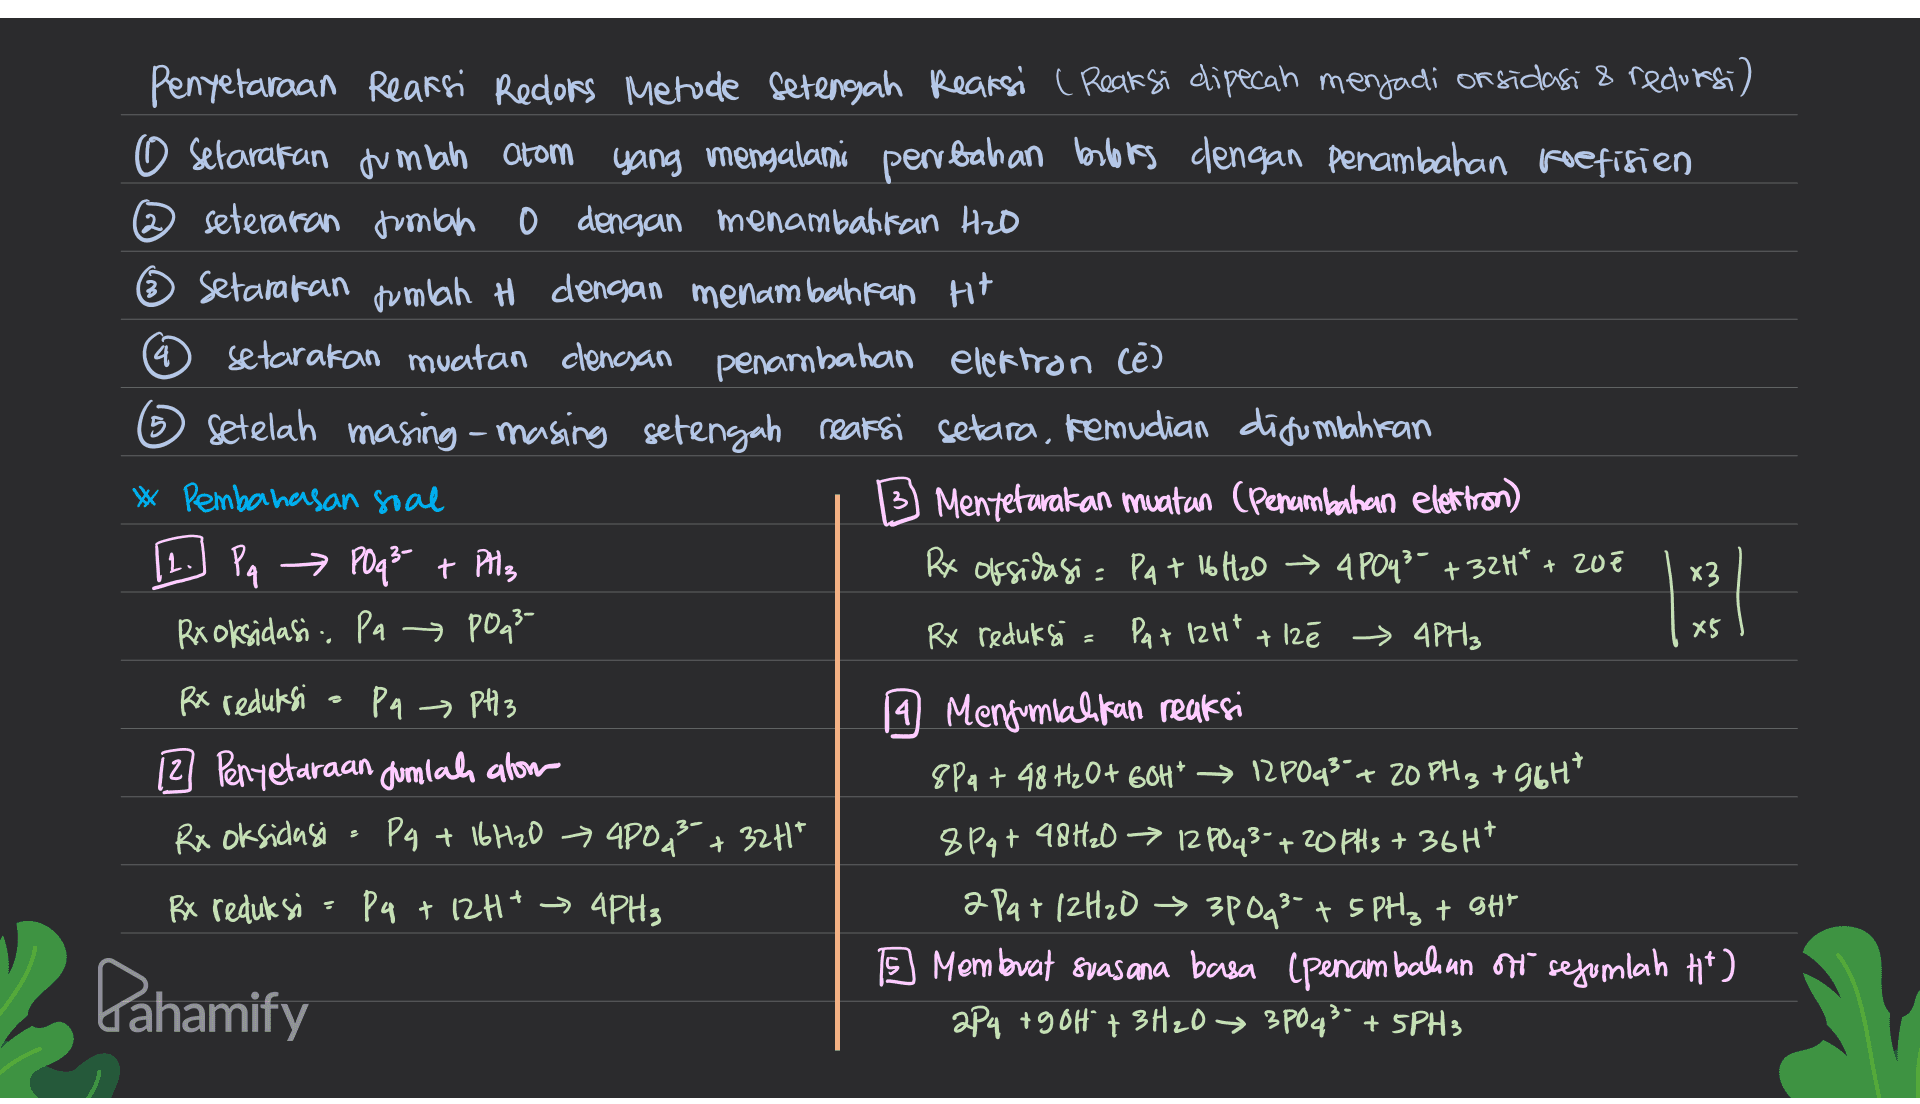 Penyetaraan Reaksi Redoks Metode Setengah Reaksi (Reaksi dipecah menjadi oksidasi & reduksi)
① Setarakan jumlah atom yang mengalami perubahan biloks dengan penambahan koefisien
② seterakan jumlah O dengan menambahkan H₂O
③ Setarakan jumlah H dengan menambahkan H⁺
④ setarakan muatan dengan penambahan elektron (ē)
⑤ Setelah masing-masing setengah reaksi setara, kemudian dijumlahkan
※ Pembahasan soal
1. P₄ → PO₄³⁻ + PH₃
Rx oksidasi : P₄ → PO₄³⁻
Rx reduksi = P₄ → PH₃
2 Penyetaraan jumlah atom
Rx oksidasi = P₄ + 16H₂O → 4PO₄³⁻ + 32H⁺
Rx reduksi = P₄ + 12H⁺ → 4PH₃
3 Menyetarakan muatan (Penambahan elektron)
Rx oksidasi = P₄ + 16H₂O → 4PO₄³⁻ + 32H⁺ + 20ē | x3 |
Rx reduksi = P₄ + 12H⁺ + 12ē → 4PH₃ | x5 |
4 Menjumlahkan reaksi
8P₄ + 48H₂O + 60H⁺ → 12PO₄³⁻ + 20PH₃ + 96H⁺
8P₄ + 48H₂O → 12PO₄³⁻ + 20PH₃ + 36H⁺
2P₄ + 12H₂O → 3PO₄³⁻ + 5PH₃ + 9H⁺
5 Membuat suasana basa (penambahan OH⁻ sejumlah H⁺)
2P₄ + 9OH⁻ + 3H₂O → 3PO₄³⁻ + 5PH₃
Pahamify